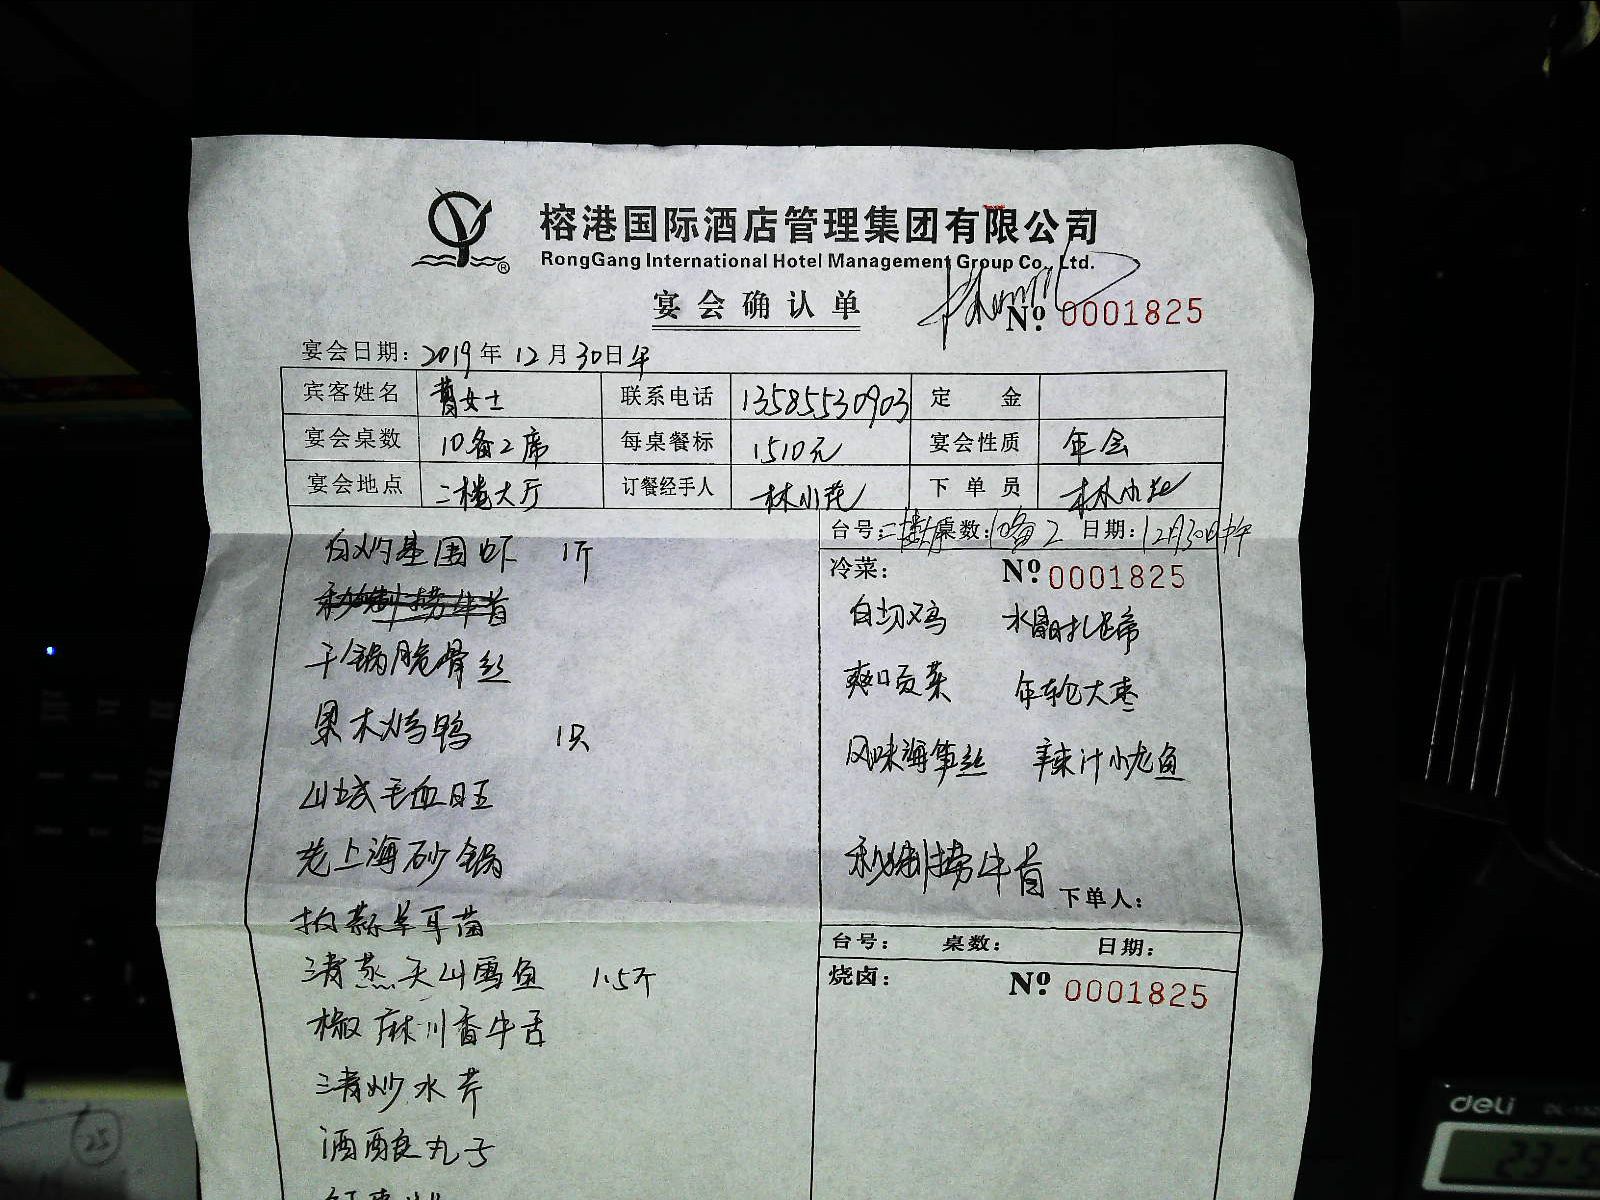 榕港国际酒店管理集团有限公司
RongGang International Hotel Management Group Co., Ltd.
宴会确认单
№ 0001825
宴会日期：2019年12月30日午
宾客姓名 曹女士 联系电话 13585530903 定金
宴会桌数 10备2席 每桌餐标 1510元 宴会性质 年会
宴会地点 二楼大厅 订餐经手人 林小花 下单员 林小花
台号：二楼大厅 桌数：10备2 日期：12月30日中午
白灼基围虾 1斤
秘制捞牛肩
干锅脆骨丝
果木烤鸭 1只
山城毛血旺
老上海砂锅
扒蒜羊耳菌
清蒸天山雪鱼 1.5斤
椒麻川香牛舌
清炒水芹
酒酿丸子
冷菜：
№ 0001825
白切鸡 水晶扎蹄
爽口贡菜 年轮大枣
风味海笋丝 辣汁小龙鱼
秘制捞牛肩
下单人：
台号： 桌数： 日期：
烧卤：
№ 0001825
deli
25